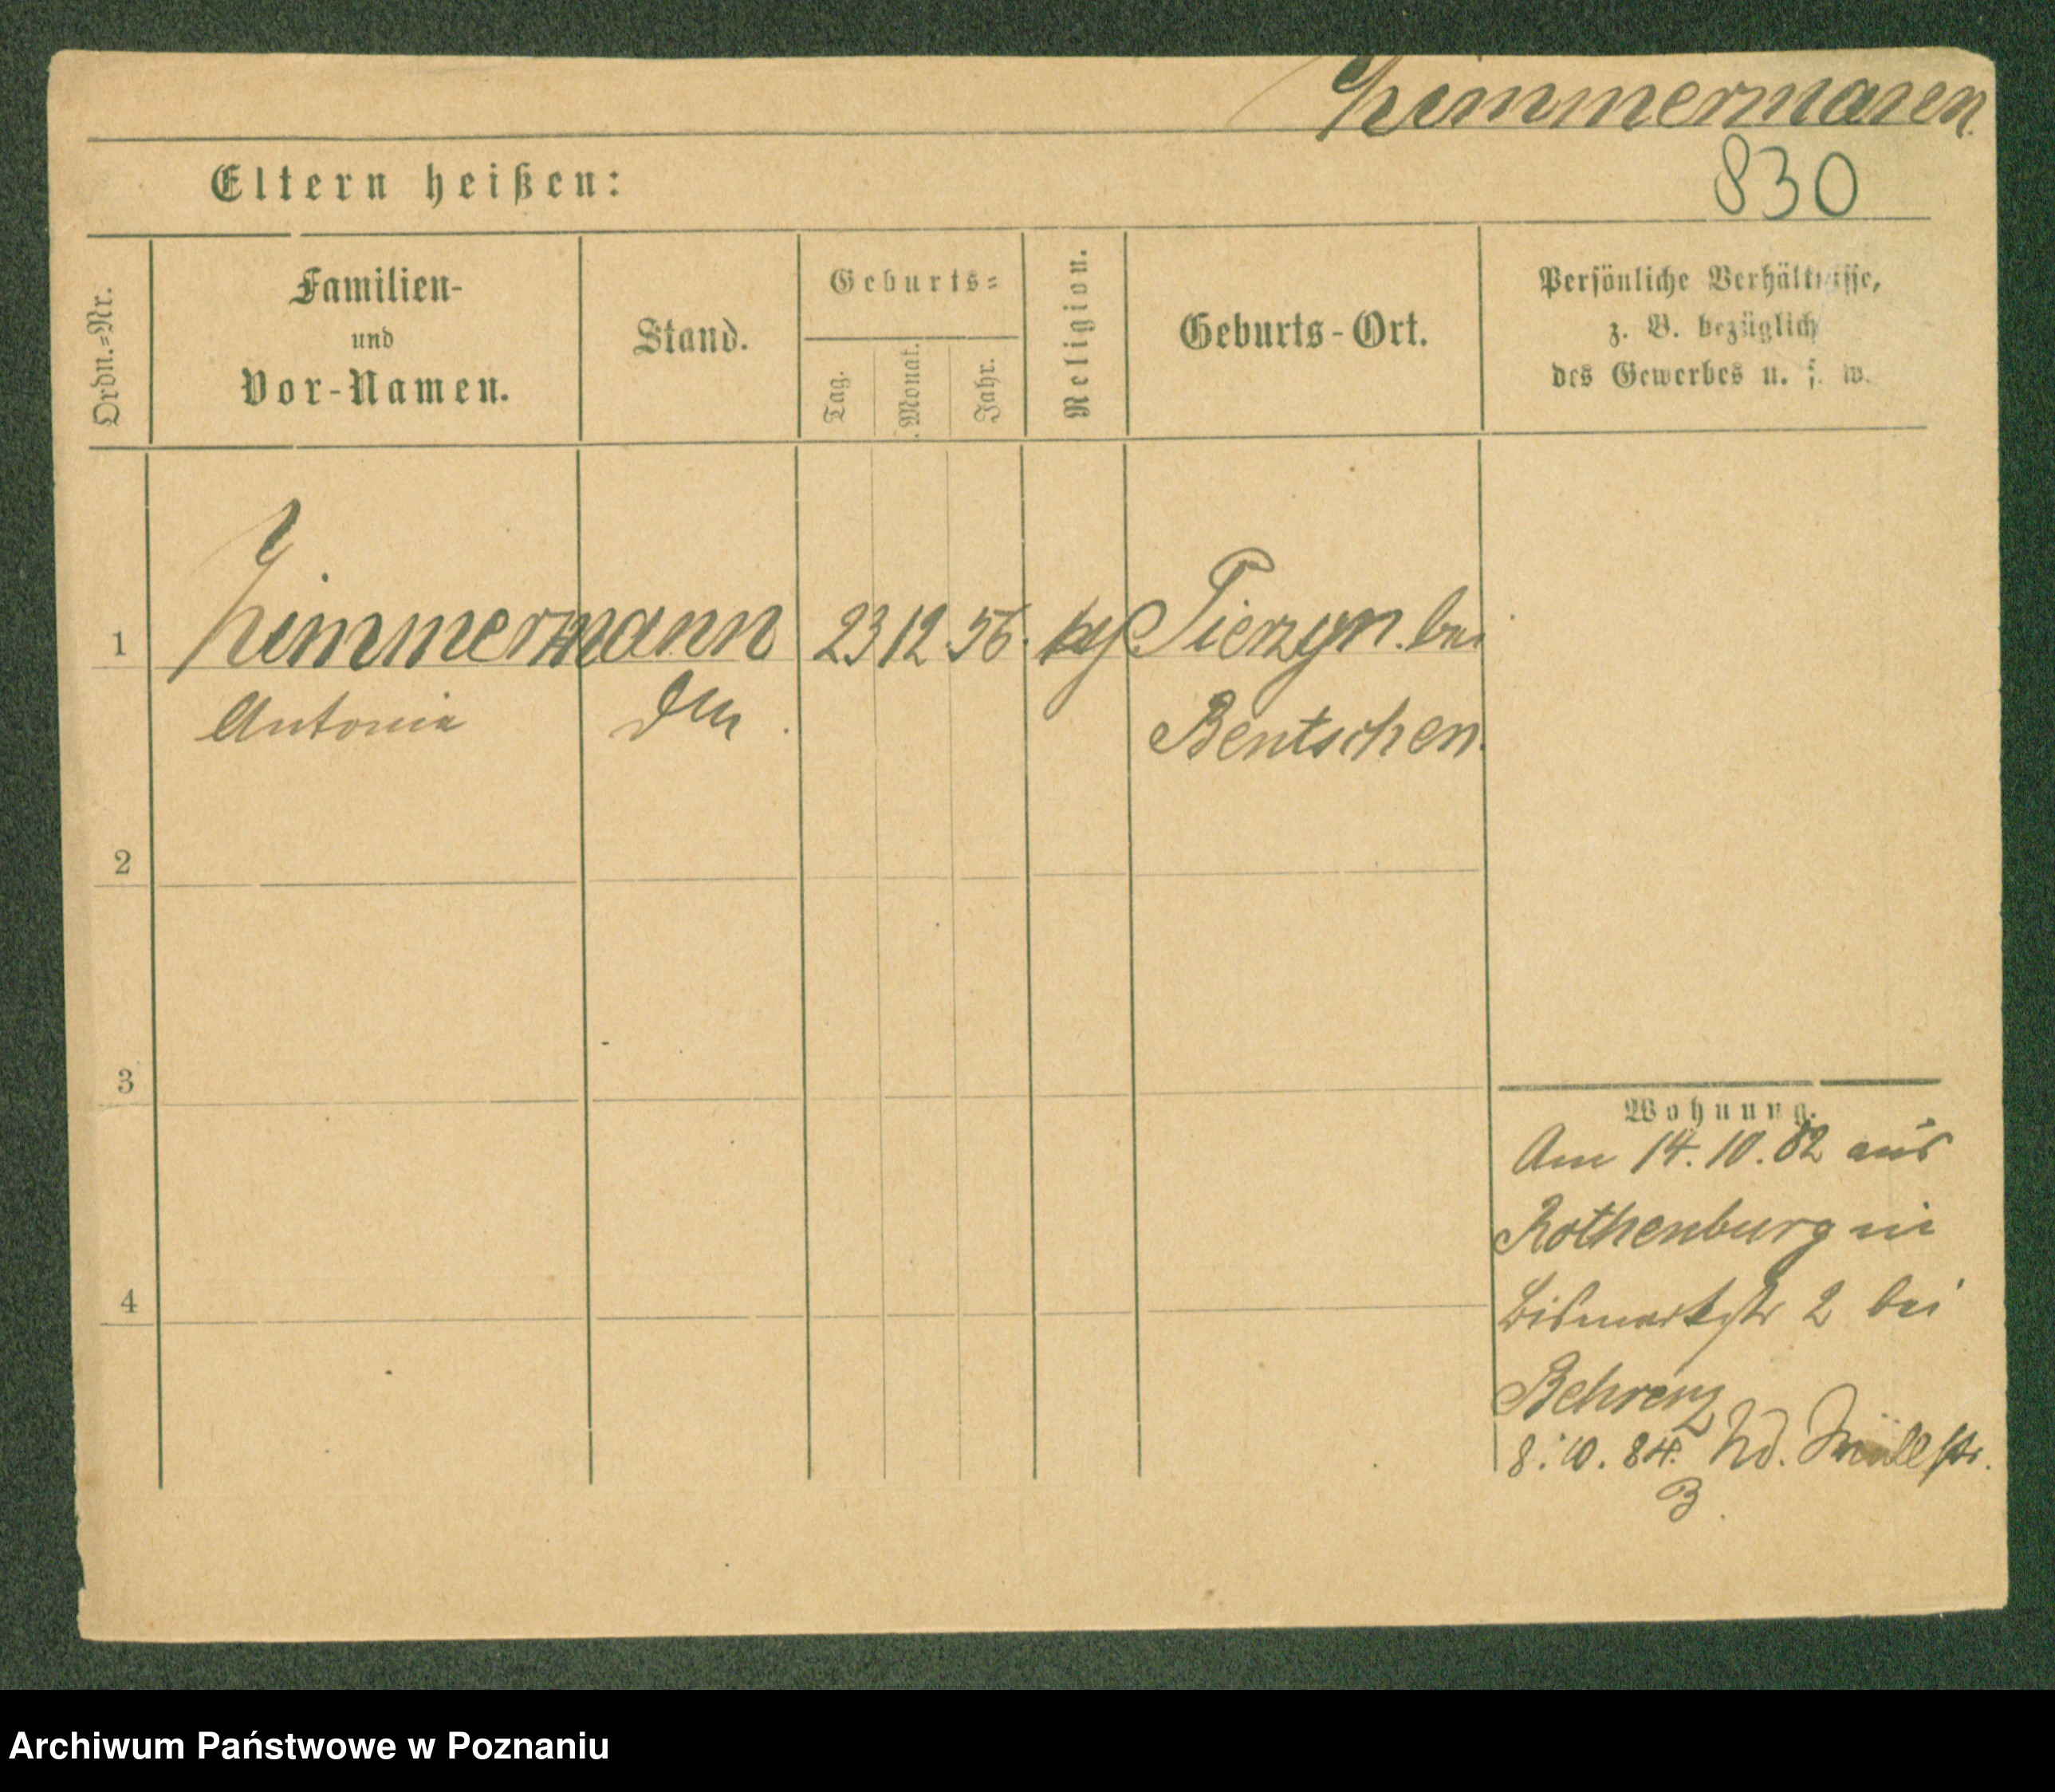 Zimmermann.
830
Eltern heißen:
Ordn.=Nr.
Familien-
und
Vor-Namen.
Stand.
Geburts=
Tag.
Monat.
Jahr.
Religion.
Geburts-Ort.
Persönliche Verhältnisse,
z. B. bezüglich
des Gewerbes u. s. w.
1
Zimmermann 23 12 56. bei
Antonia
Bentschen.
2
3
4
Wohnung.
Am 14.10.82 aus
Rothenburg in
Bismarkstr 2 bei
Behrenz
8.10.84.
3.
Archiwum Państwowe w Poznaniu